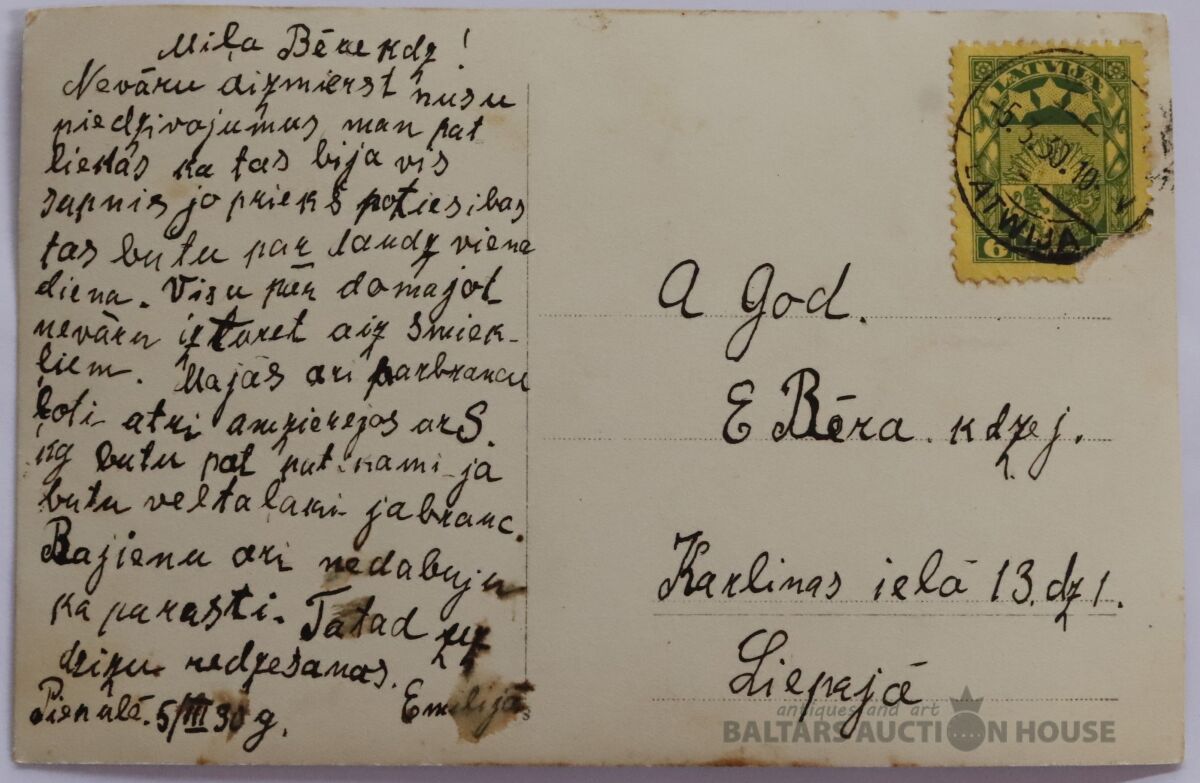 Miļa Bēre kdz!
Nevāru aizmierst nusu
piedzivojumus man pat
liekās ka tas bija vis
sapnis jo prieks patiesibas
tas butu par daudz viena
diena. Visu pār domajot
nevāru izturet aiz smiek-
ļiem. Majās ari parbraucu
ļoti atri amzierejos ar S.
ng butu pat nami ja
butu vel talaki jabrauc.
Rajienu ari nedabuju
ka parasti. Tātad uz
drizu redzešanos.
5/III 30 g. Emilija
LATVIJA
15.3.30.10
LATWIJA
6
A God.
E Bēra kdzej.
Karlinas ielā 13. dz 1.
Liepajā
antiques and art
BALTARS AUCTION HOUSE